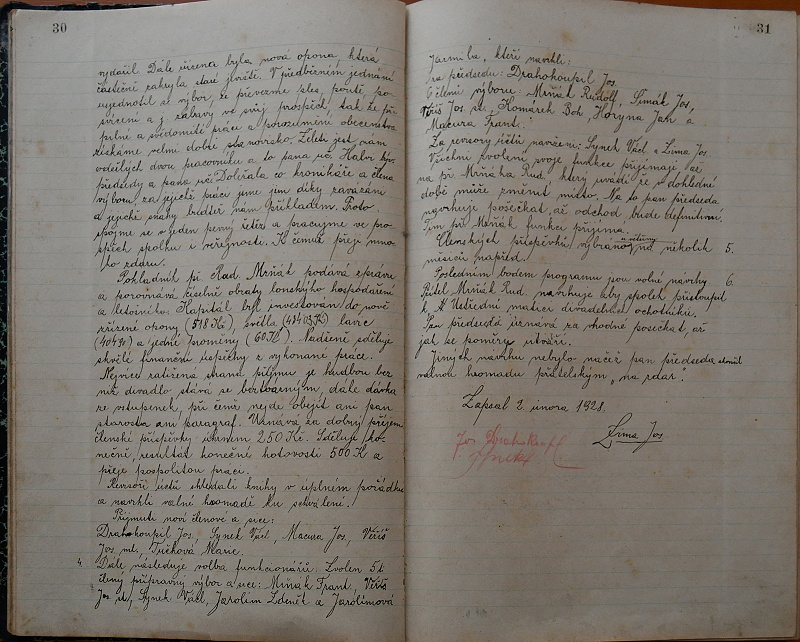 30
vydařil. Dále řízena byla nová opona, která
částečně zakryla staré jeviště. V předběžném jednání
ujednotil se výbor, že převezme ples, pouť, po-
svícení a j. zábavy ve svůj prospěch, tak že při
pilné a svědomité práci a porozumění obecenstva
získáme velmi dobré stanovisko. Želeti jest nám
odešlých dvou pracovníků a to pana uč. Halvy býv.
předsedy a pana uč. Doležala co kronikáře a člena
výboru, za jejichž práci jsme jim díky zavázáni
a jejich snahy buďtež nám příkladem. Proto
spojme se v jeden pevný řetěz a pracujme ve pro-
spěch spolku i veřejnosti. K čemuž přeji mno-
ho zdaru.
Pokladník př. Rud. Mrňák podává zprávu
a porovnává číselně obraty loňského hospodaření
a letošního. Kapitál byl investován do nově
zřízené opony (518 Kč), světla lavic
a jedné promíny (60 Kč). Nadšeně sděluje
skvělé finanční úspěchy z vykonané práce.
Nejvíce zatížena strana příjmů je hudbou bez
níž divadlo stává se beztvárným, dále dávka
ze vstupenek, při čemž nejde obejít ani pan
starosta ani paragraf. Uznává za dobrý příjem
členské příspěvky obnosem 250 Kč. Sděluje ko-
nečný resultát konečné hotovosti 500 Kč a
přeje pospolitou práci.
Revisoři účtů shledali knihy v úplném pořádku
a navrhli valné hromadě ku schválení.
Přijmuti noví členové a sice:
Drahokoupil Jos. Synek Václ, Macura Jos, Věříš
Jos. ml, Tučková Marie.
4. Dále následuje volba funkcionářů. Zvolen 5ti
členný přípravný výbor a sice: Mrňák Frant, Věříš
Jos st, Synek Václ, Jarolím Zdeněk a Jarolímová
31
Jarmila, kteří navrhli:
za předsedu: Drahokoupil Jos.
6 členů výboru: Mrňák Rudolf, Šimák Jos,
Věříš Jos st. Komárek Boh, Horyna Jan a
Macura Frant.
Za revisory účtů navrženi: Synek Václ a Zima Jos.
Všichni zvolení svoje funkce přijímají, až
na př. Mrňáka Rud. který uvádí že v dohledné
době může změnit místo. Na to pan předseda
navrhuje posečkat, až odchod bude definitivní.
Tím př. Mrňák funkci přijímá.
Členských příspěvků vybráno u většiny na několik 5.
měsíců napřed.
Posledním bodem programu jsou volné návrhy. 6.
Přítel Mrňák Rud. navrhuje aby spolek přistoupil
k Ústřední matici divadelních ochotníků.
Pan předseda uznává za vhodné posečkat, až
jak se poměry utváří.
Jiných návrhů nebylo načež pan předseda skončil
valnou hromadu přátelským „na zdar".
Zapsal 2. února 1928.
Jos. Drahokoupil
Zima Jos.